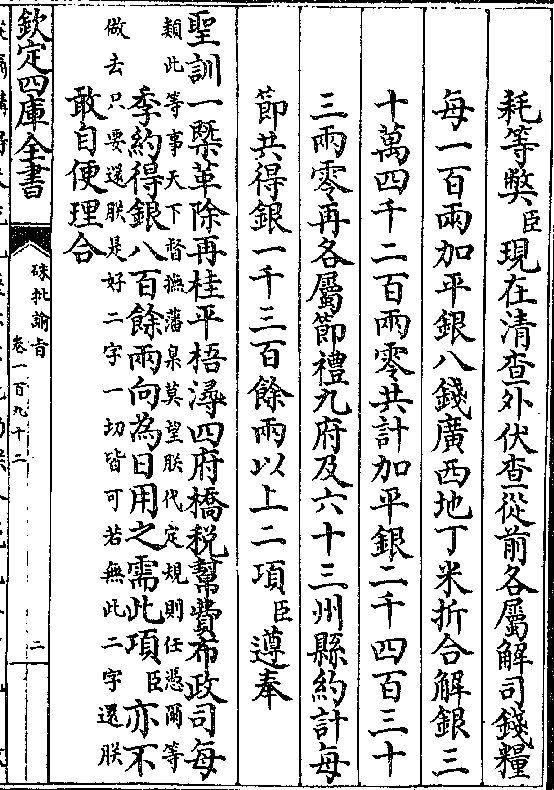 耗等弊臣現在清查外伏查從前各屬解司錢糧
每一百兩加平銀八錢廣西地丁米折合解銀三
十萬四千二百兩零共計加平銀二千四百三十
三兩零再各屬節禮九府及六十三州縣約計每
節共得銀一千三百餘兩以上二項臣遵奉
聖訓一槩革除再桂平梧潯四府橋税幫費布政司每
類此等事天下督撫藩臬莫望朕代定規則任憑爾等
季約得銀八百餘兩向為日用之需此項臣亦不
做去只要還朕是好二字一切皆可若無此二字還朕
敢自便理合
欽定四庫全書
硃批諭旨
卷一百九十二
二